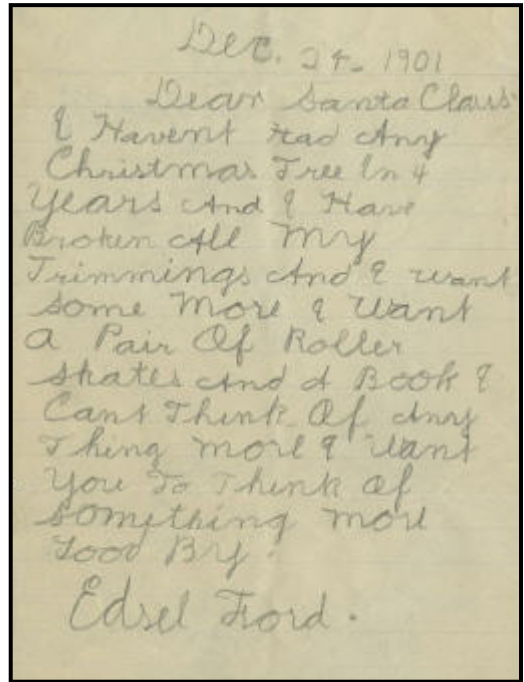 Dec. 24- 1901
Dear Santa Claus
I Havent Had Any
Christmas Tree In 4
Years And I Have
Broken All My
Trimmings And I want
Some More I Want
A Pair Of Roller
Skates And A Book I
Cant Think Of Any
Thing More I Want
You To Think Of
Something More
Good By.
Edsel Ford.